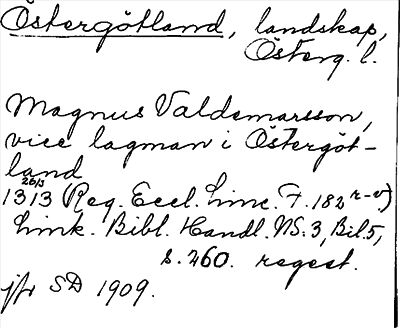 Östergötland, landskap,
Österg. l.
Magnus Valdemarsson,
vice lagman i Östergöt-
land
1313 26/3 (Reg. Eccl. Linc. F. 182 r-v)
Link. Bibl. Handl. NS. 3, Bil. 5,
s. 260. regest.
jfr SD 1909.